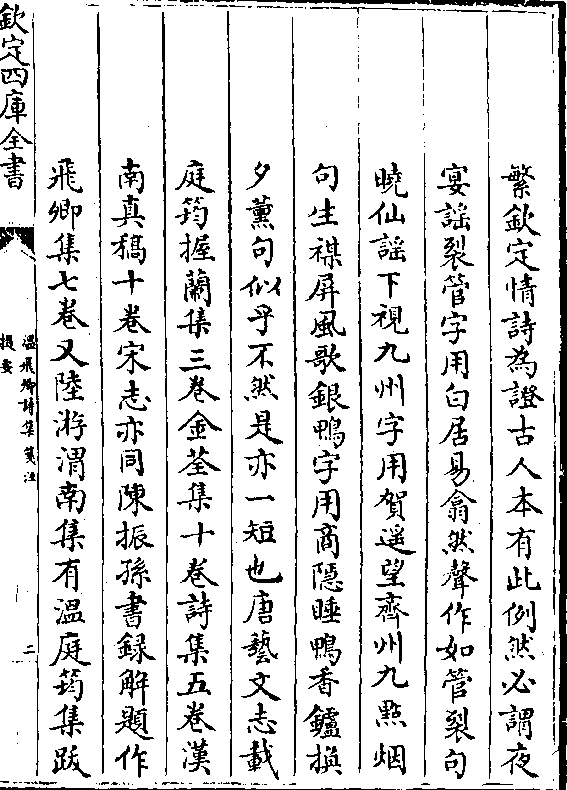 繁欽定情詩為證古人本有此例然必謂夜
宴謡裂管字用白居易翕然聲作如管裂句
曉仙謡下視九州字用賀遥望齊州九㸃烟
句生禖屏風歌銀鴨字用商隱睡鴨香鑪換
夕薰句似乎不然是亦一短也唐藝文志載
庭筠握蘭集三卷金荃集十卷詩集五卷漢
南真稿十卷宋志亦同陳振孫書録解題作
飛卿集七卷又陸游渭南集有温庭筠集跋
欽定四庫全書
温飛卿詩集箋注
提要
二